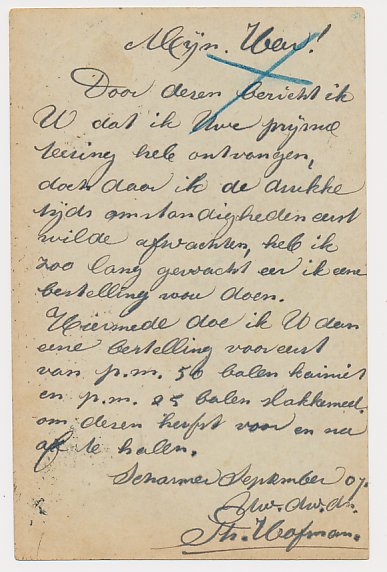 Mijn. Heer!
Door dezen bericht ik
U dat ik Uwe prijsno
teering heb ontvangen,
doch daar ik de drukke
tijds omstandigheden eerst
wilde afwachten, heb ik
zoo lang gewacht eer ik eene
bestelling wou doen.
Hiermede doe ik U dan
eene bestelling vooreerst
van p.m. 50 balen kainiet
en p.m. 25 balen slakkemeel.
om dezen herfst voor en na
af te halen.
Scharmer September 07.
Uw. dw. dr.
Th. Hofman.